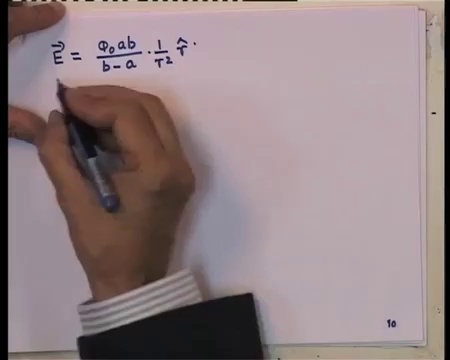 E⃗ = Φ₀ab / (b-a) · 1/r² r̂
10